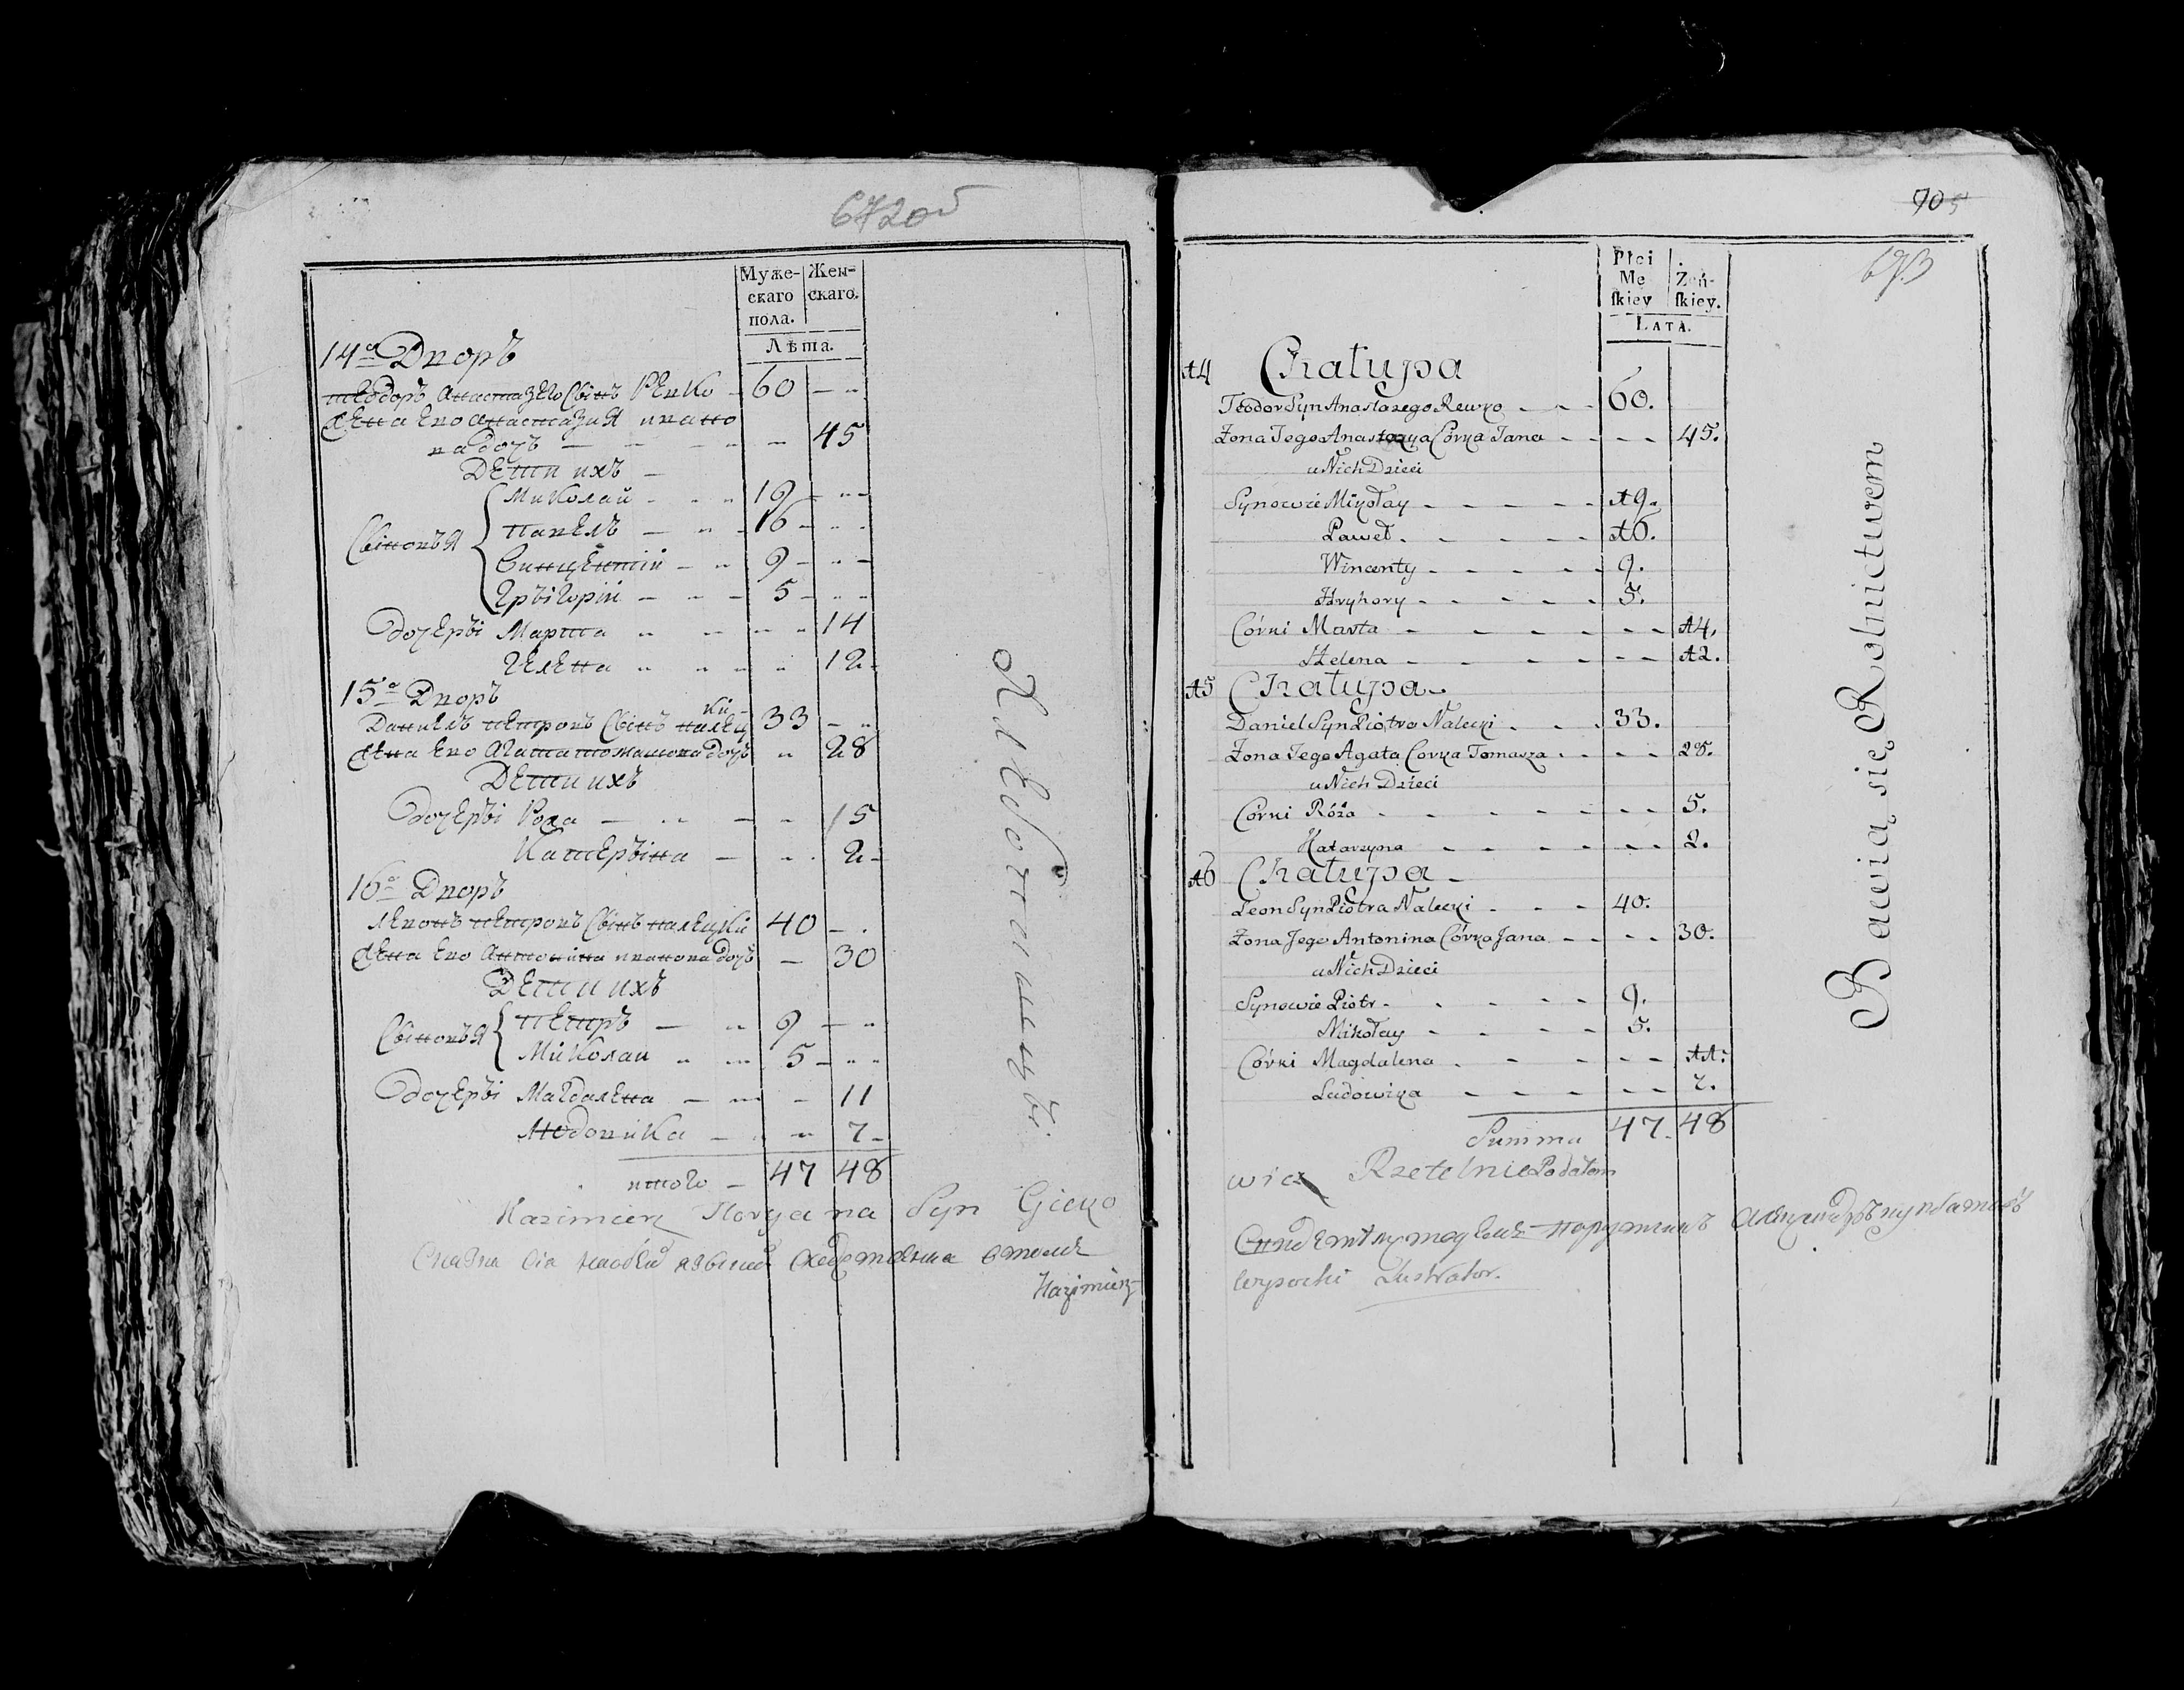 672об
Муже-
скаго
пола.
Жен-
скаго.
Лѣта.
14й Дворъ
теодоръ анастазего Свінъ Ревко 60
жена Ево анастазия ивано
ва дочъ 45
Дети ихъ
Свіновья Миколай 19
Павелъ 16
Винцентій 9
Грыгорій 5
Дочеры Марта 14
Гелена 12
15й Дворъ
Даниелъ петровъ Свінъ налец
кй 33
жена Ево Агата томашова дочъ 28
Дети ихъ
Дочеры Рожа 5
Катерына 2
16й Дворъ
леонъ петровъ Свінъ налецкй 40
жена Ево антонина иванова дочъ 30
Дети ихъ
Свіновья петръ 9
Миколай 5
Дочеры Магдалена 11
Людовика 7
итого 47 48
Хлебопашцы.
Kazimierz Floryana Syn Gieko
Kazimierz
705
673
Płci
Mę
skiey
Żeń-
skiey.
LATA.
14 Chałupa
Teodor Syn Anastazego Rewko 60.
Żona Jego Anastazya Córka Jana 45.
u Nich Dzieci
Synowie Mikołay 19.
Paweł 16.
Wincenty 9.
Hryhory 5.
Córki Marta 14.
Helena 12.
15 Chałupa
Daniel Syn Piotra Nalecki 33.
Żona Jego Agata Corka Tomasza 28.
u Nich Dzieci
Córki Róża 5.
Katarzyna 2.
16 Chałupa
Leon Syn Piotra Nalecki 40.
Żona Jego Antonina Córka Jana 30.
u Nich Dzieci
Synowie Piotr 9.
Mikołay 5.
Córki Magdalena 11.
Ludowika 7.
Summa 47. 48
Bawią się Rolnictwem
wicz Rzetelnie Podałem
Wysocki Lustrator.